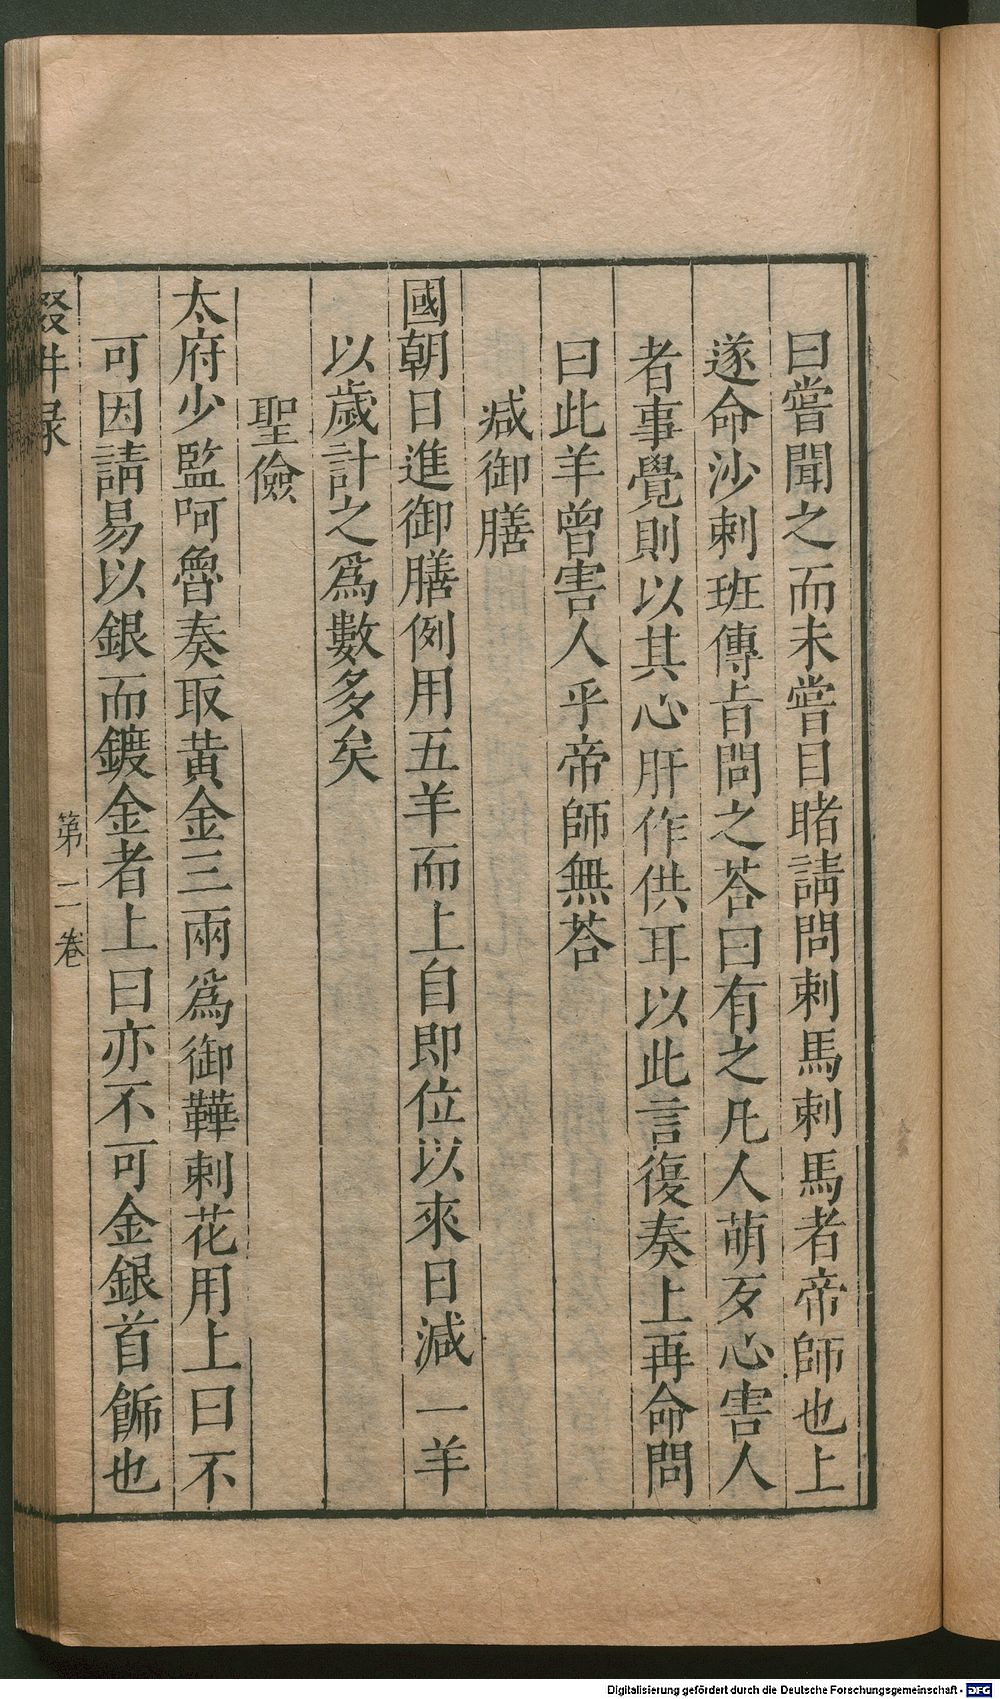 曰嘗聞之而未嘗目睹請問剌馬剌馬者帝師也上
遂命沙剌班傳旨問之荅曰有之凡人萌歹心害人
者事覺則以其心肝作供耳以此言復奏上再命問
曰此羊曾害人乎帝師無荅
减御膳
國朝日進御膳例用五羊而上自即位以來日減一羊
以歲計之爲數多矣
聖儉
太府少監呵魯奏取黄金三兩爲御鞾刺花用上曰不
可因請易以銀而鍍金者上曰亦不可金銀首飾也
輟畊录
第二卷
Digitalisierung gefördert durch die Deutsche Forschungsgemeinschaft - DFG